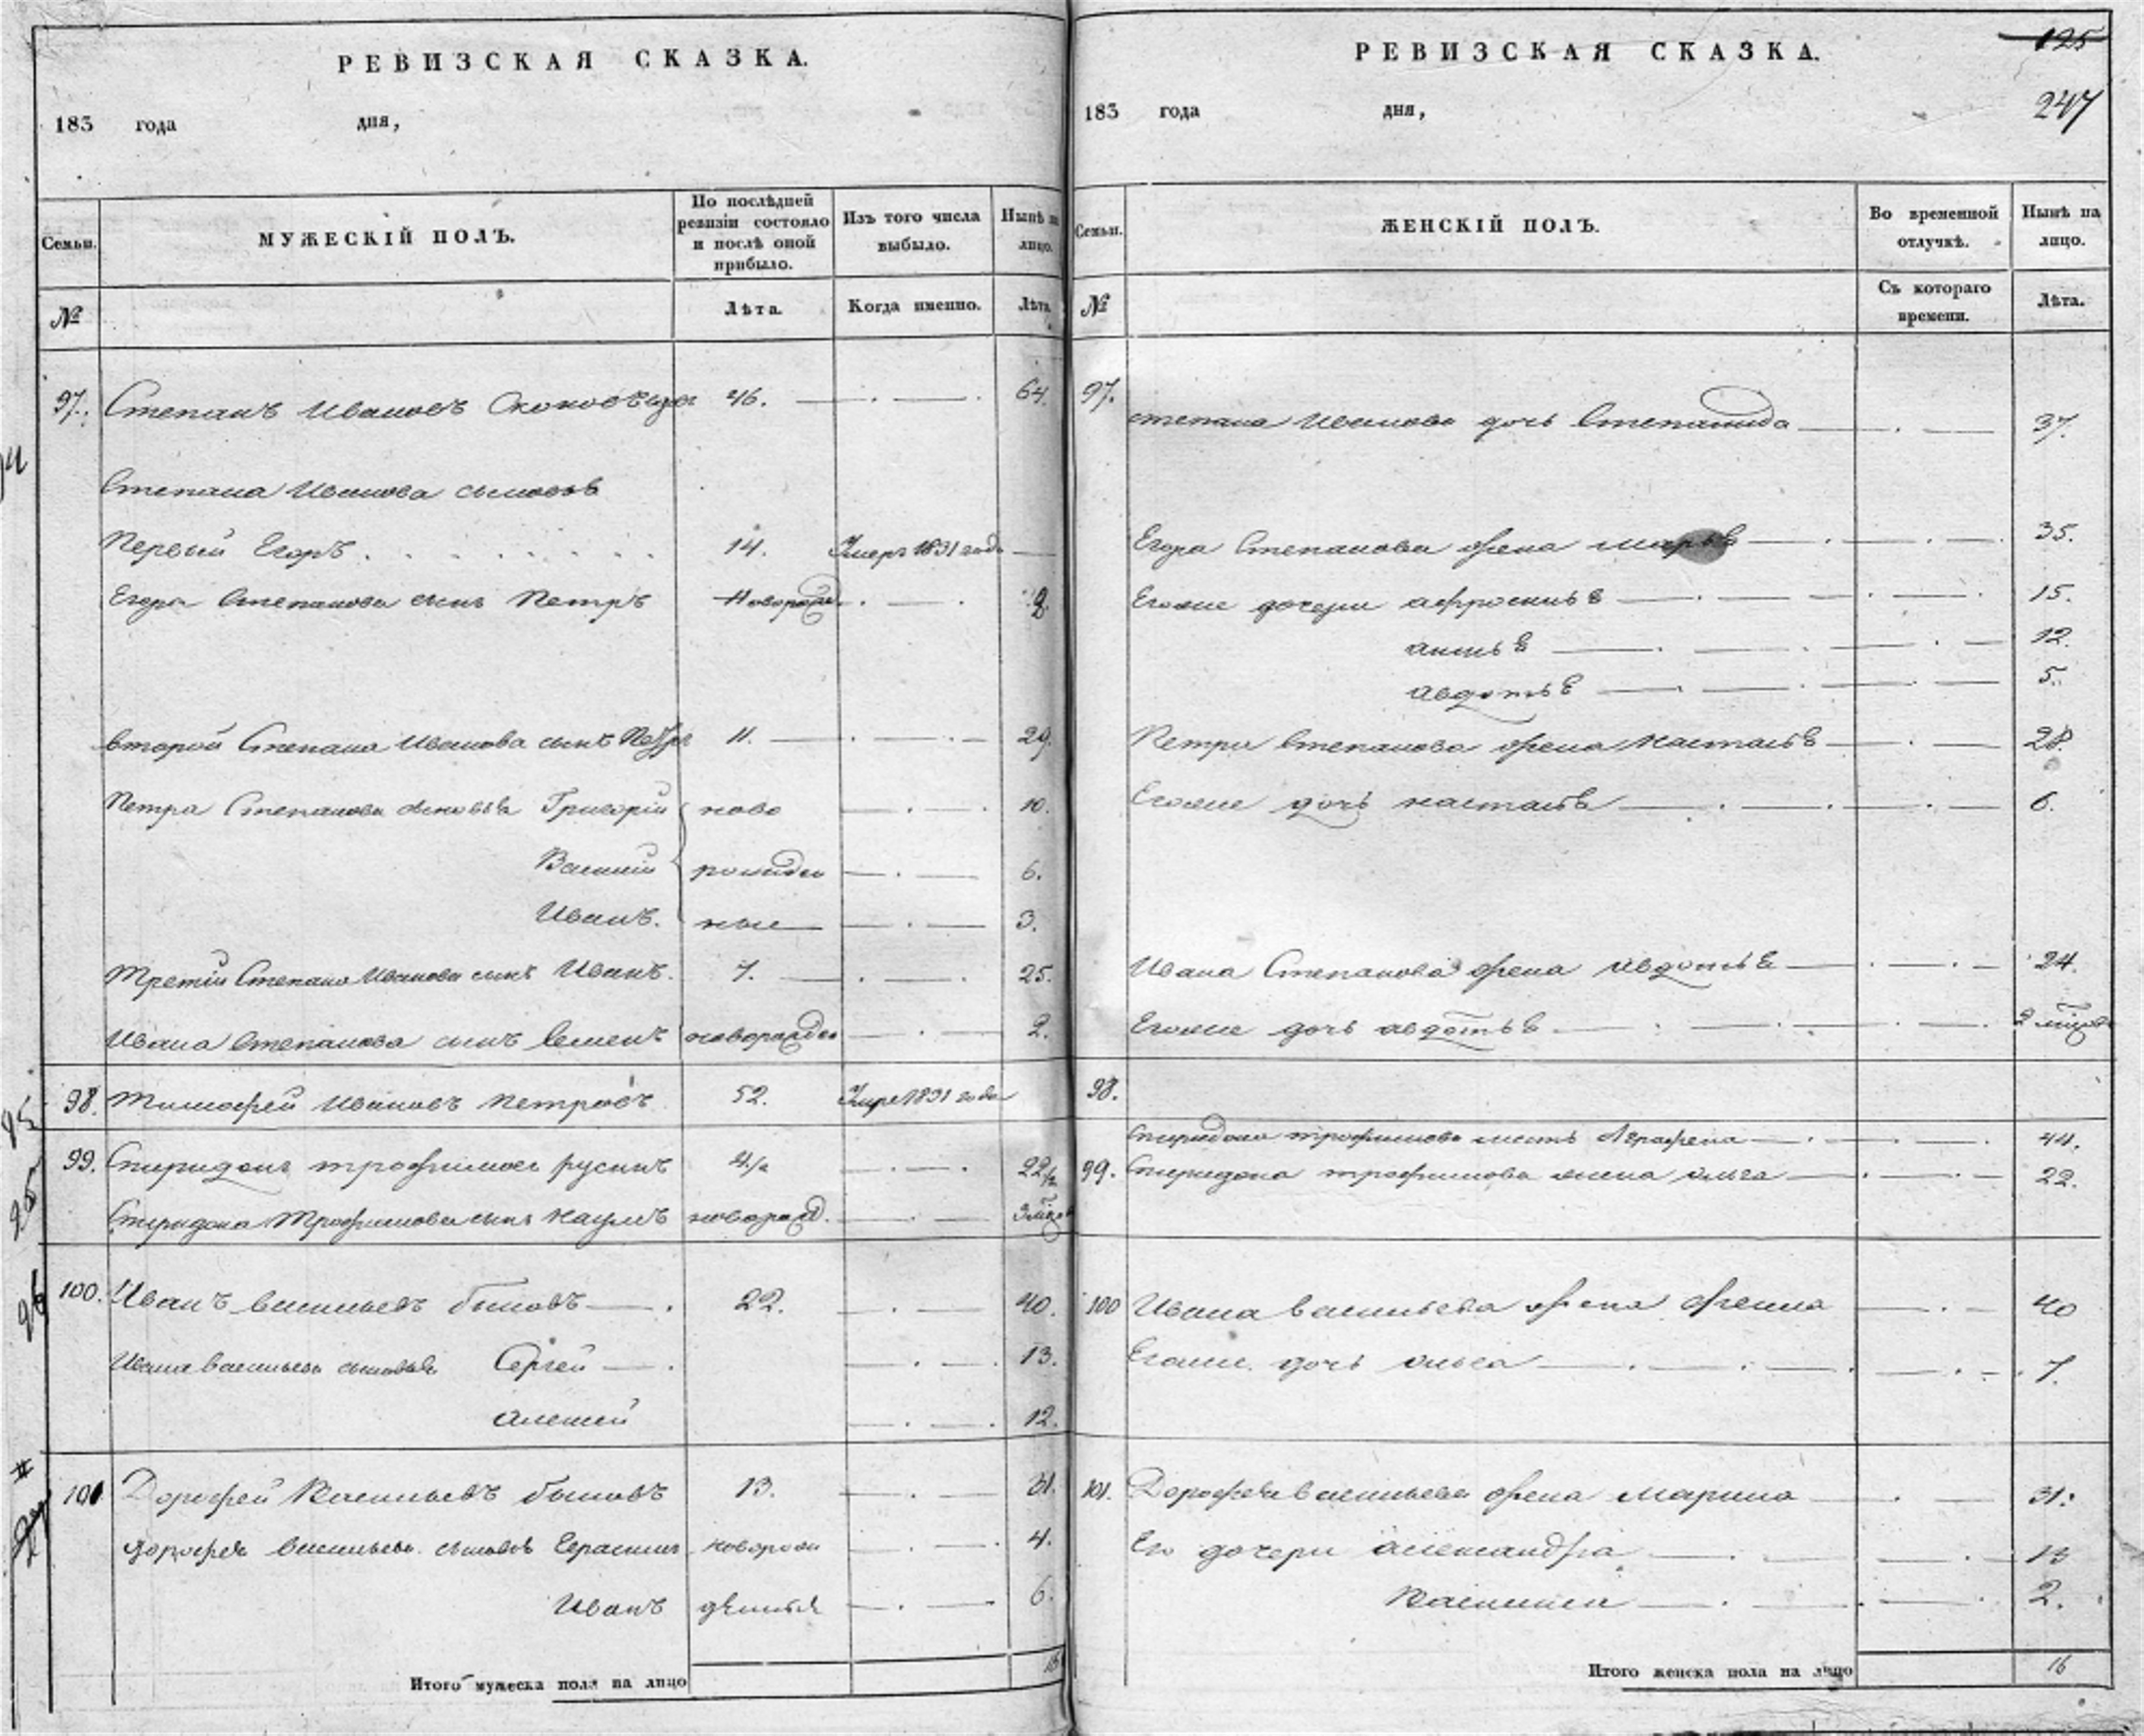 РЕВИЗСКАЯ СКАЗКА.
183 года дня,
Семьи. МУЖЕСКІЙ ПОЛЪ. По послѣдней ревизіи состояло и послѣ оной прибыло. Изъ того числа выбыло. Нынѣ на лицо.
№ Лѣта. Когда именно. Лѣта.
97. Степанъ Ивановъ 46. 64.
Степана Иванова сыновья
Первый Егоръ 14. Умеръ 1831 года
Егора Степанова сынъ Петръ Новорожд. 2
второй Степана Иванова сынъ Петръ 11. 29.
Петра Степанова сыновья Григорій ново 10.
Василій рожден 6.
Иванъ. ные 3.
Третій Степана Иванова сынъ Иванъ. 7. 25.
Ивана Степанова сынъ Семенъ новорожден 2.
98. Тимофей Ивановъ Петровъ 52. Умре 1831 года
99. Спиридонъ трофимовъ 4½ 22½
Спиридона Трофимова сынъ Наумъ новорожд. 3 мѣся
100. Иванъ васильевъ 22. 40.
Ивана васильева сыновья Сергей 13.
Алексей 12.
101 Дорофей Васильевъ 13. 31.
дорофея васильева сыновья Герасимъ новорож 4.
Иванъ денныя 6.
Итого мужеска пола на лицо 16
РЕВИЗСКАЯ СКАЗКА. 125
183 года дня, 247
Семьи. ЖЕНСКІЙ ПОЛЪ. Во временной отлучкѣ. Нынѣ на лицо.
№ Съ котораго времени. Лѣта.
97. степана Иванова дочь Степанида 37.
Егора Степанова жена марья 35.
Егоже дочери афросинья 15.
анна 12.
авдотья 5.
Петра Степанова жена Настасья 28.
Егоже дочь настасья 6.
Ивана Степанова жена авдотья 24.
Егоже дочь авдотья 2 мѣся
98.
Спиридона трофимова мать Аграфена 44.
99. Спиридона трофимова жена ольга 22.
100 Ивана васильева жена 40
Егоже дочь ольга 7.
101. Дорофея васильева жена Марина 31.
Его дочери александра 13
2.
Итого женска пола на лицо 16